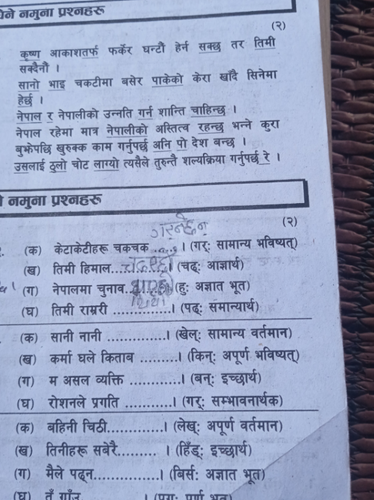 नमुना प्रश्नहरू
(२)
कृष्ण आकाशतर्फ फर्केर घन्टौं हेर्न सक्छ तर तिमी
सक्दैनौ ।
सानो भाइ चकटीमा बसेर पाकेको केरा खाँदै सिनेमा
हेर्छ ।
नेपाल र नेपालीको उन्नति गर्न शान्ति चाहिन्छ ।
नेपाल रहेमा मात्र नेपालीको अस्तित्व रहन्छ भन्ने कुरा
बुझेपछि खुरुक्क काम गर्नुपर्छ अनि पो देश बन्छ ।
उसलाई ठुलो चोट लाग्यो त्यसैले तुरुन्तै शल्यक्रिया गर्नुपर्छ रे ।
नमुना प्रश्नहरू
(२)
(क) केटाकेटीहरू चकचक.......। (गर्: सामान्य भविष्यत्)
(ख) तिमी हिमाल............। (चढ्: आज्ञार्थ)
(ग) नेपालमा चुनाव............। (हु: अज्ञात भूत)
(घ) तिमी राम्ररी ............। (पढ्: सामान्यार्थ)
(क) सानी नानी ............। (खेल्: सामान्य वर्तमान)
(ख) कर्मा घले किताब .........। (किन्: अपूर्ण भविष्यत्)
(ग) म असल व्यक्ति ............। (बन्: इच्छार्थ)
(घ) रोशनले प्रगति ............। (गर्: सम्भावनार्थक)
(क) बहिनी चिठी............। (लेख्: अपूर्ण वर्तमान)
(ख) तिनीहरू सबेरै......... । (हिँड्: इच्छार्थ)
(ग) मैले पढ्न............। (बिर्स: अज्ञात भूत)
(घ) तँ गाउँ